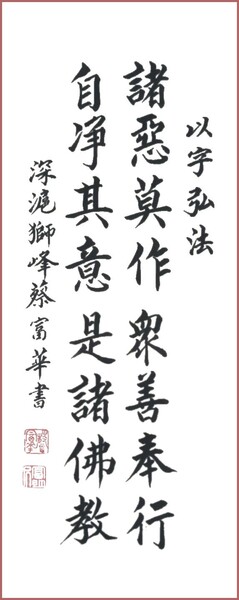 以字弘法
諸惡莫作眾善奉行
自净其意是諸佛教
深滬獅峰蔡富華書